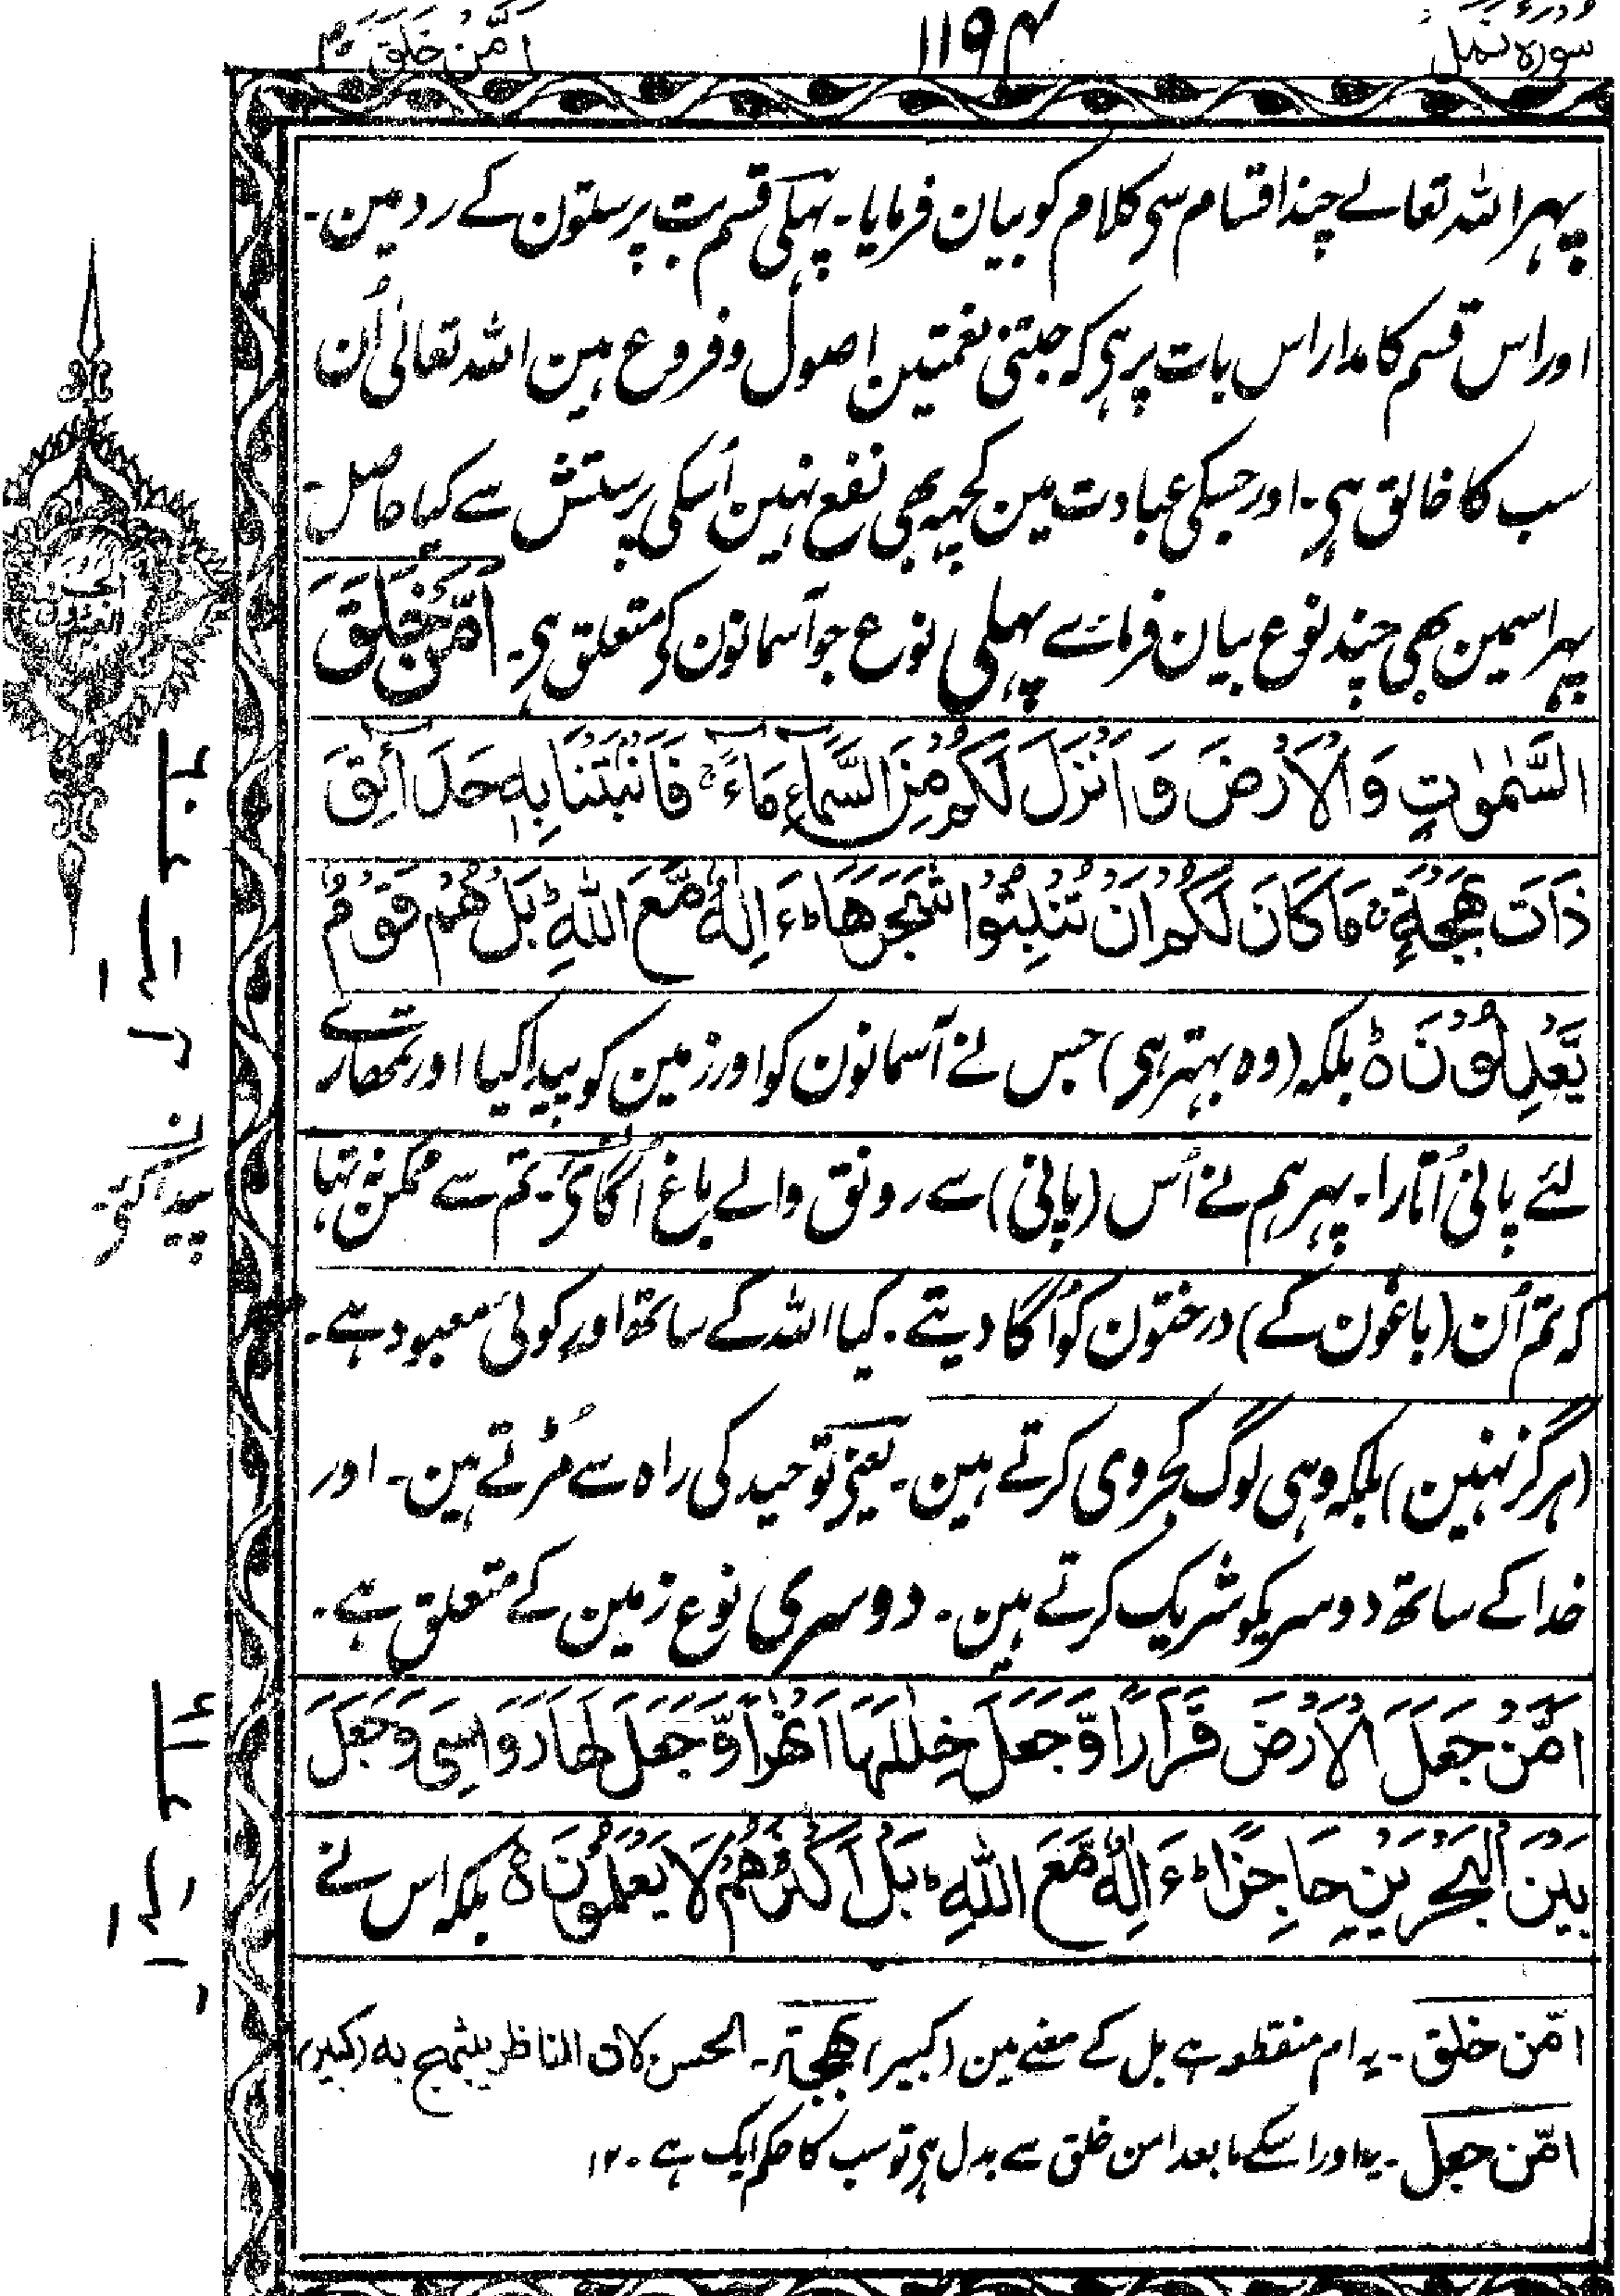 سورہ نمل
۱۱۹۴
امن خلق ۲۰
پہر اللہ تعالے چند اقسام سی کلام کو بیان فرمایا۔ پہلی قسم بت پرستون کے رد مین۔
اور اس قسم کا مدار اس بات پر ہی کہ جتنی نعمتین اصول و فروع ہین اللہ تعالیٰ اُن
سب کا خالق ہی۔ اور جسکی عبادت مین کچہہ بھی نفع نہین اُسکی پرستش سے کیا حاصل۔
پہر اسمین بھی چند نوع بیان فرمائے پہلی نوع جو آسمانون کی متعلق ہی۔ اَمَّنْ خَلَقَ
السَّمٰوٰتِ وَالْاَرْضَ وَاَنْزَلَ لَكُمْ مِّنَ السَّمَآءِ مَآءً ۚ فَاَنْۢبَتْنَا بِهٖ حَدَآئِقَ
ذَاتَ بَهْجَةٍ ۚ مَا كَانَ لَكُمْ اَنْ تُنْۢبِتُوْا شَجَرَهَا ؕ ءَاِلٰهٌ مَّعَ اللّٰهِ ؕ بَلْ هُمْ قَوْمٌ
يَّعْدِلُوْنَ ۝ بلکہ (وہ بہتر ہی) جس نے آسمانون کو اور زمین کو پیدا کیا اور تمھارے
لئے پانی اُتارا۔ پہر ہم نے اُس (پانی) سے رونق والے باغ اُگائے۔ تم سے ممکن نہ تہا
کہ تم اُن (باغون کے) درختون کو اُگا دیتے۔ کیا اللہ کے ساتھ اور کوئی معبود ہے۔
(ہرگز نہین) بلکہ وہی لوگ کجروی کرتے ہین۔ یعنی توحید کی راہ سے مُڑتے ہین۔ اور
خدا کے ساتھ دوسریکو شریک کرتے ہین۔ دوسری نوع زمین کے متعلق ہے۔
اَمَّنْ جَعَلَ الْاَرْضَ قَرَارًا وَّجَعَلَ خِلٰلَهَآ اَنْهٰرًا وَّجَعَلَ لَهَا رَوَاسِىَ وَجَعَلَ
بَيْنَ الْبَحْرَيْنِ حَاجِزًا ؕ ءَاِلٰهٌ مَّعَ اللّٰهِ ؕ بَلْ اَكْثَرُهُمْ لَا يَعْلَمُوْنَ ۝ بلکہ اس نے
امّن خلق۔ یہ ام منقطعہ ہے بل کے معنے مین (کبیر) بهجة۔ الحسن لان الناظر يبتهج به (کبیر)
امّن جعل۔ یہ اور اسکے مابعد امن خلق سے بدل ہی تو سب کا حکم ایک ہے۔ ۱۲
پیدا کئے